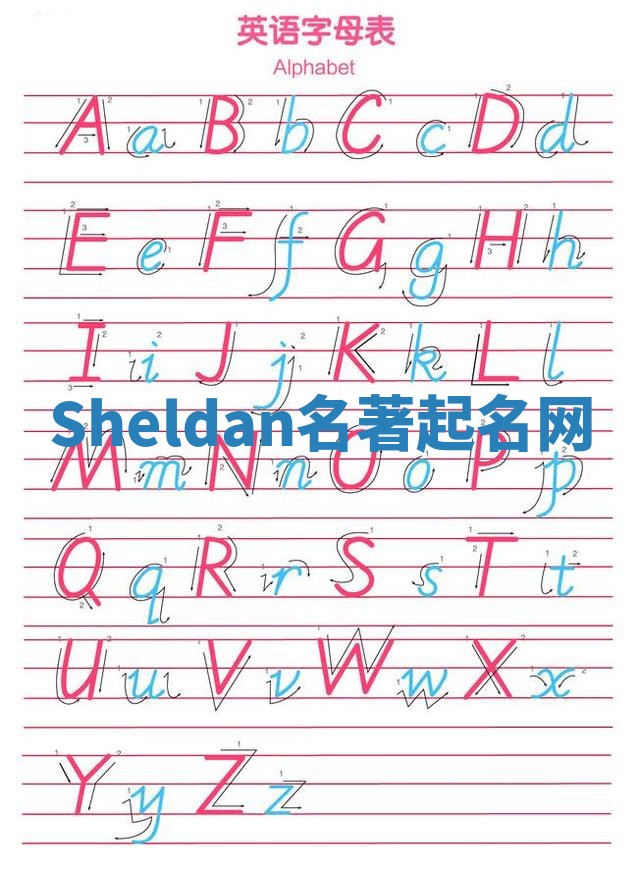 英语字母表
Alphabet
A a B b C c D d
E e F f G g H h
I i J j K k L l
Sheldan名著起名网
M m N n O o P p
Q q R r S s T t
U u V v W w X x
Y y Z z